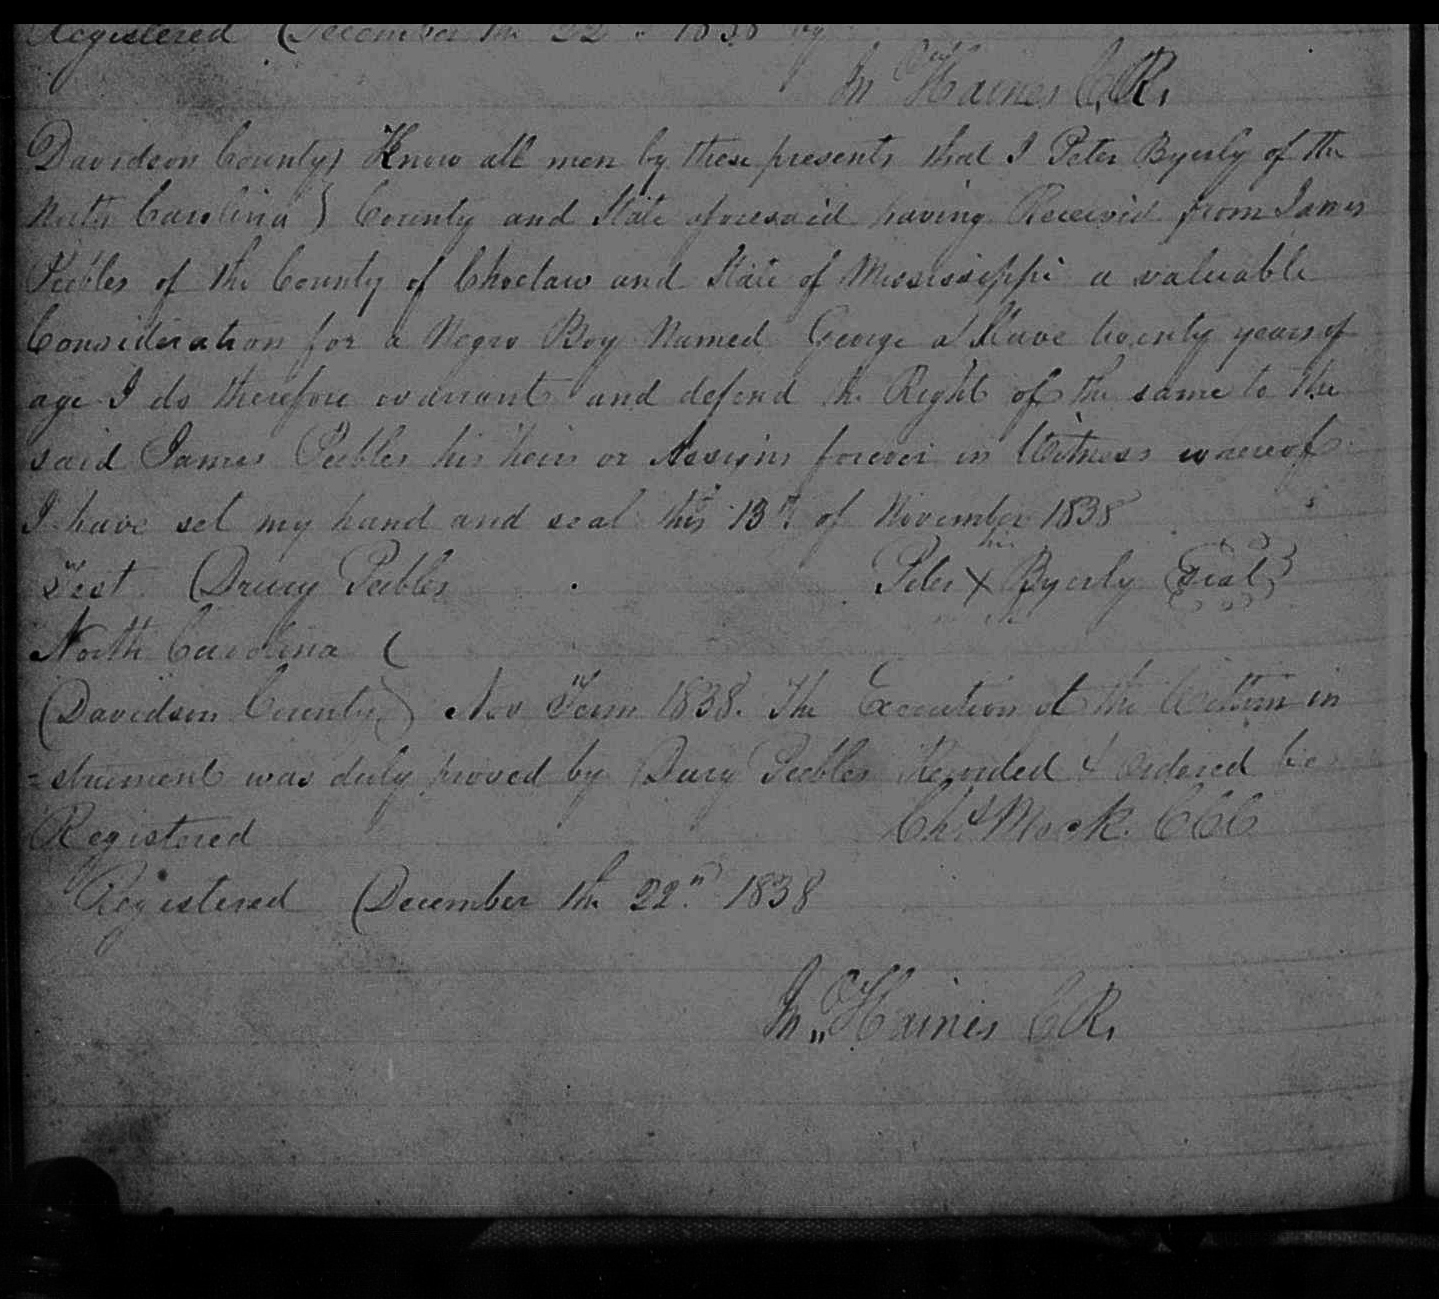 Registered December the 22 1838 by
Jn Haines C.R.
Davidson County} Know all men by these presents that I Peter Byerly of the
North Carolina } County and State aforesaid having Received from James
Peebles of the County of Choctaw and State of Mississippi a valuable
Consideration for a Negro Boy Named George a Slave twenty years of
age I do therefore warrant and defend the Right of the same to the
said James Peebles his heirs or Assigns forever in Witness whereof
I have set my hand and seal this 13th of November 1838
his
Test Drury Peebles Peter X Byerly {Seal}
North Carolina (
Davidson County) Nov Term 1838. The Execution of the Within in
=strument was duly proved by Drury Peebles Recorded & ordered be
Registered Chs Mock. CCC
Registered December the 22nd 1838
Jn Haines C R.